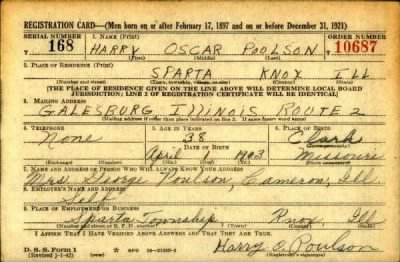 REGISTRATION CARD—(Men born on or after February 17, 1897 and on or before December 31, 1921)
SERIAL NUMBER 1. NAME (Print) ORDER NUMBER
168 HARRY OSCAR POULSON 10687
(First) (Middle) (Last)
2. PLACE OF RESIDENCE (Print)
SPARTA KNOX ILL
(Number and street) (Town, township, village, or city) (County) (State)
[THE PLACE OF RESIDENCE GIVEN ON THE LINE ABOVE WILL DETERMINE LOCAL BOARD
JURISDICTION; LINE 2 OF REGISTRATION CERTIFICATE WILL BE IDENTICAL]
3. MAILING ADDRESS
GALESBURG ILLINOIS ROUTE 2
(Mailing address if other than place indicated on line 2. If same insert word same)
4. TELEPHONE 5. AGE IN YEARS 6. PLACE OF BIRTH
None 38 Clark
DATE OF BIRTH
April 1903 Missouri
(Exchange) (Number) (Mo.) (Day) (Yr.) (State or country)
7. NAME AND ADDRESS OF PERSON WHO WILL ALWAYS KNOW YOUR ADDRESS
Mrs. George Poulson, Cameron, Ill
8. EMPLOYER'S NAME AND ADDRESS
Self
9. PLACE OF EMPLOYMENT OR BUSINESS
Sparta Township Knox, Ill
(Number and street or R. F. D. number) (Town) (County) (State)
I AFFIRM THAT I HAVE VERIFIED ABOVE ANSWERS AND THAT THEY ARE TRUE.
D. S. S. Form 1
(Revised 1-1-42) GPO Harry O. Poulson